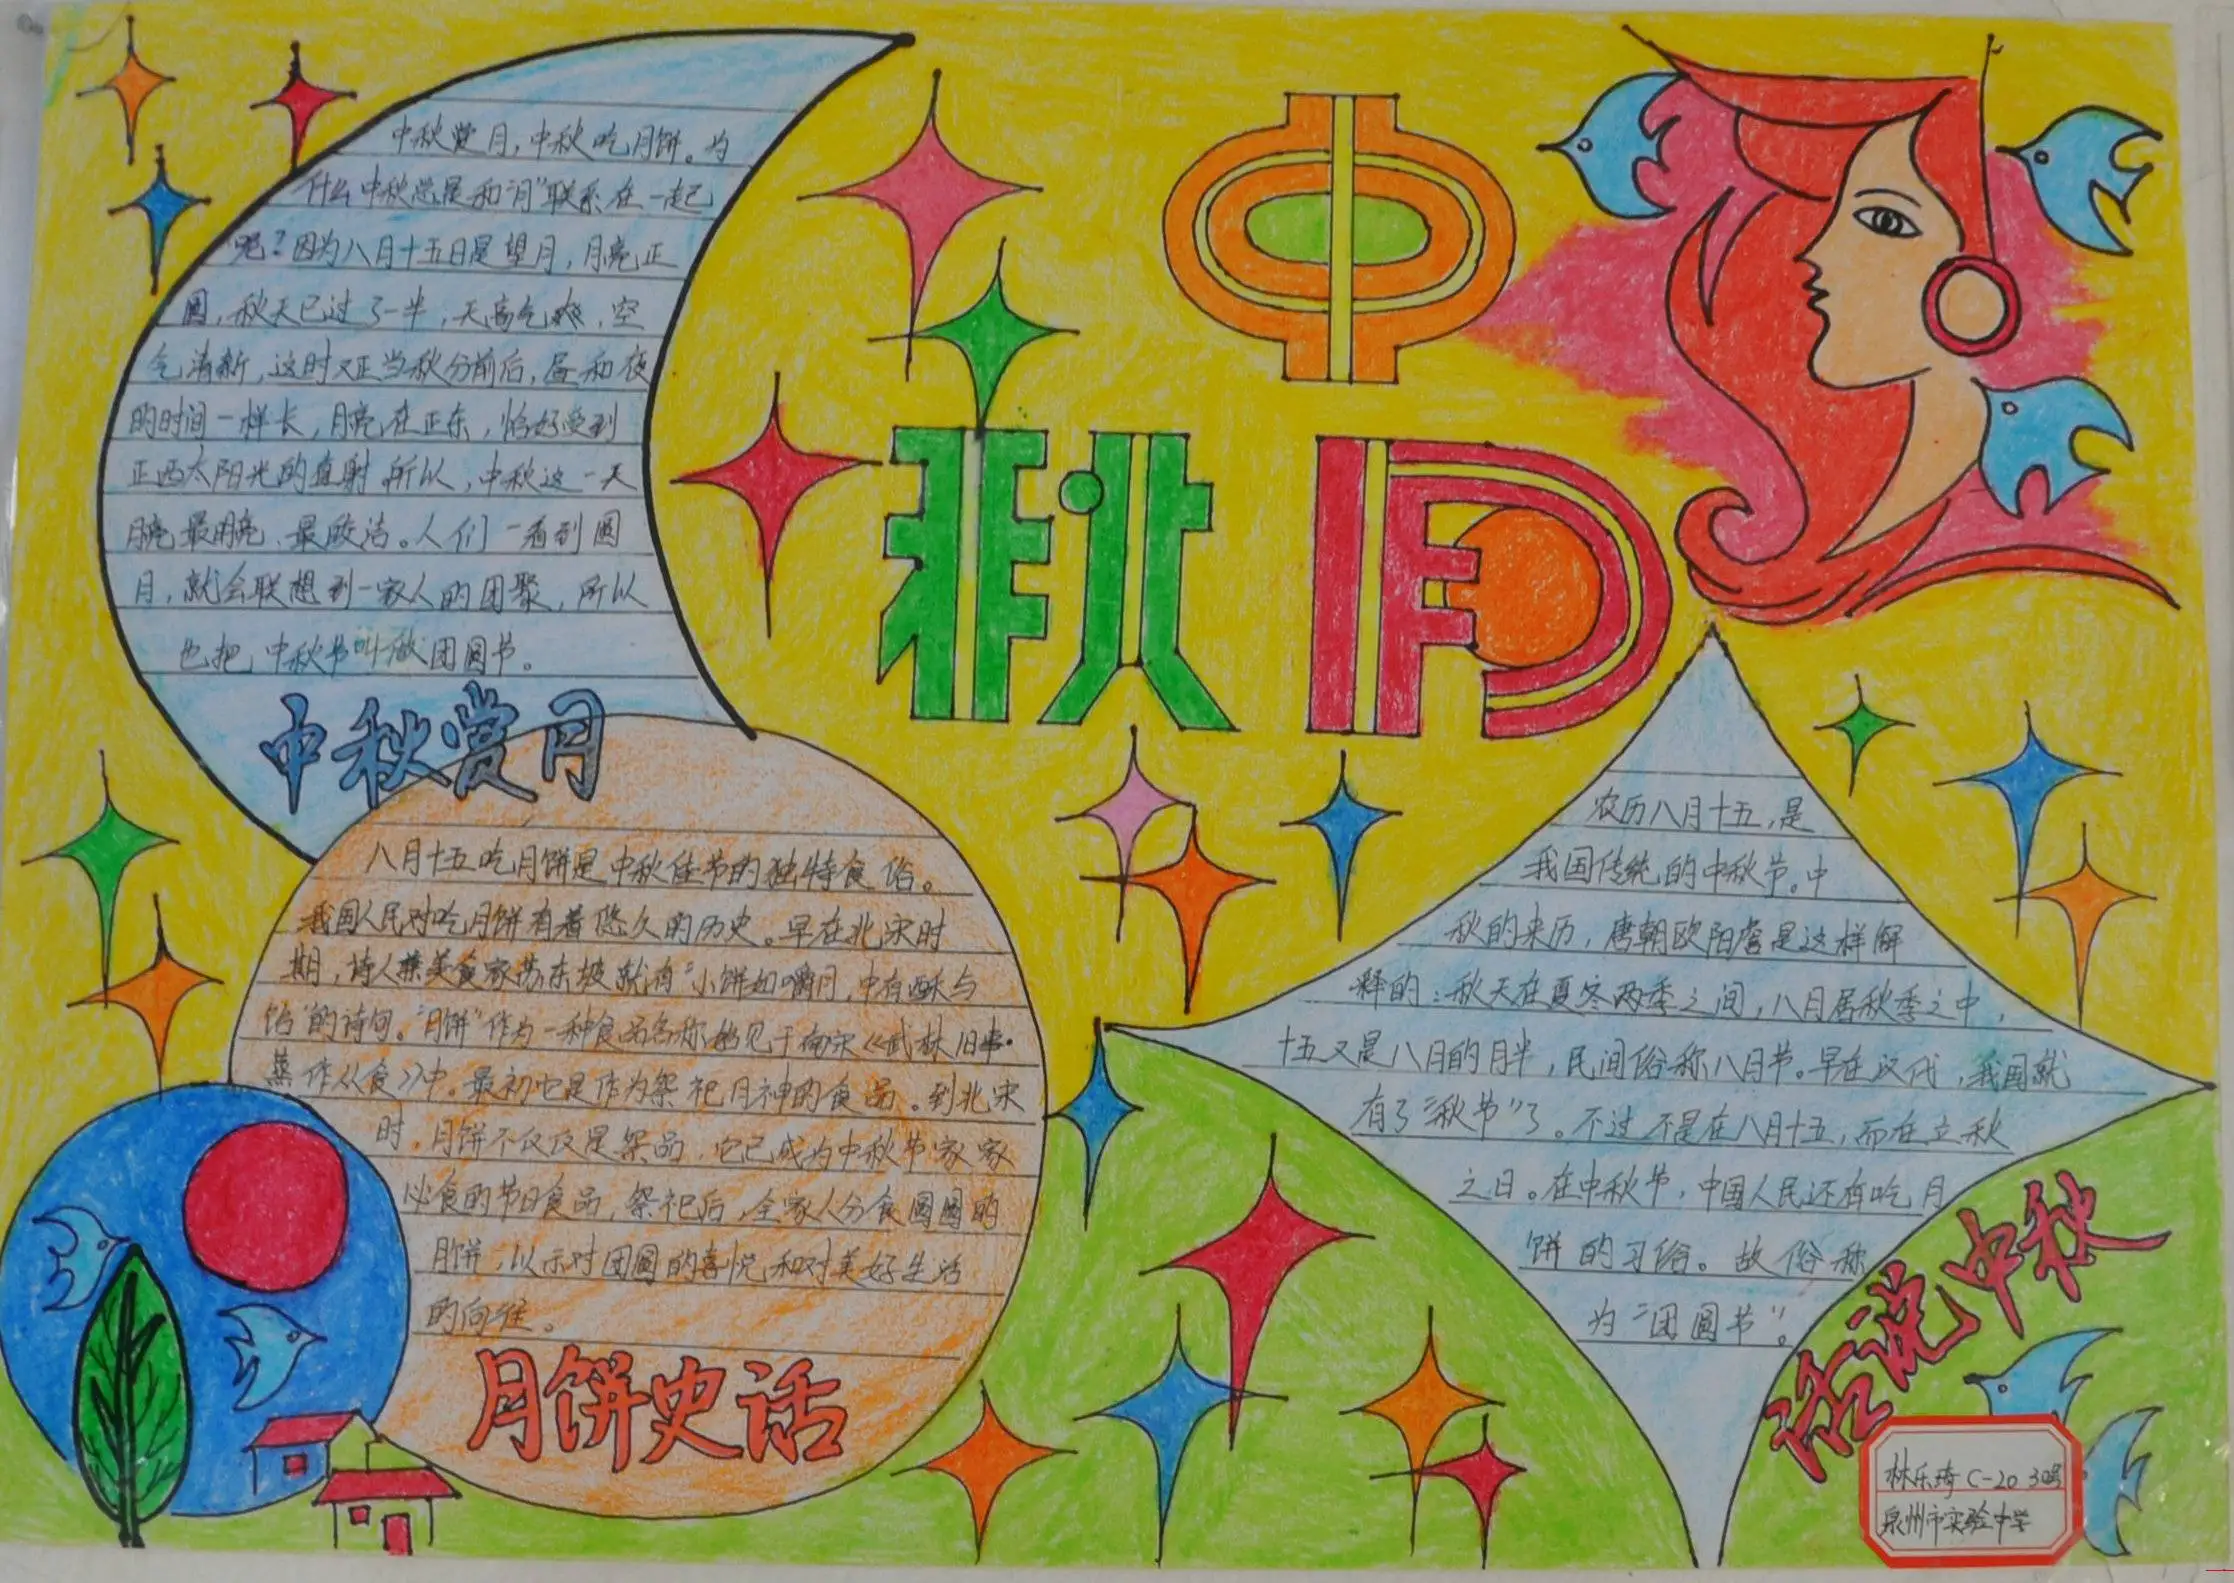 中秋月
中秋赏月,中秋吃月饼。为
什么中秋总是和“月”联系在一起
呢?因为八月十五日是望月,月亮正
圆,秋天已过了一半,天高气爽,空
气清新,这时又正当秋分前后,昼和夜
的时间一样长,月亮在正东,恰好受到
正西太阳光的直射.所以,中秋这一天
月亮最明亮、最皎洁。人们一看到圆
月,就会联想到一家人的团聚,所以
也把中秋节叫做团圆节。
中秋赏月
八月十五吃月饼是中秋佳节的独特食俗。
我国人民对吃月饼有着悠久的历史。早在北宋时
期,诗人兼美食家苏东坡就有“小饼如嚼月,中有酥与
饴”的诗句。“月饼”作为一种食品名称始见于南宋《武林旧事·
蒸作从食》中。最初它是作为祭祀月神的食品。到北宋
时,月饼不仅仅是祭品,它已成为中秋节家家
必食的节日食品,祭祀后,全家人分食圆圆的
月饼,以示对团圆的喜悦和对美好生活
的向往。
月饼史话
农历八月十五,是
我国传统的中秋节。中
秋的来历,唐朝欧阳詹是这样解
释的:秋天在夏冬两季之间,八月居秋季之中,
十五又是八月的月半,民间俗称八月节。早在汉代,我国就
有了“秋节”了。不过不是在八月十五,而在立秋
之日。在中秋节,中国人民还有吃月
饼的习俗。故俗称
为“团圆节”。
话说中秋
林乐琦 C-20 30号
泉州市实验中学